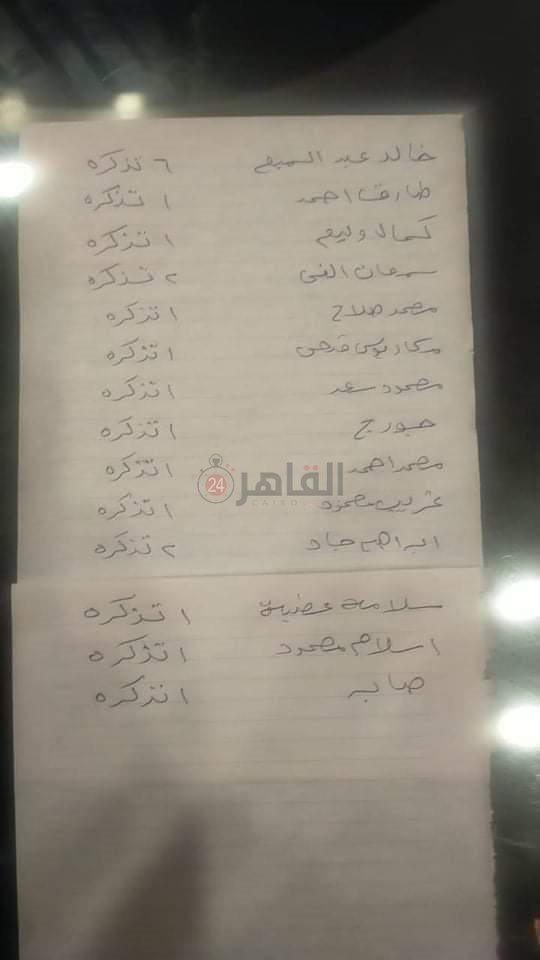 خالد عبد السميع ٦ تذكره
طارق احمد ١ تذكره
كمال وليم ١ تذكره
سمعان الفى ٢ تذكره
محمد صلاح ١ تذكره
مكاريوس ١ تذكره
محمود سعد ١ تذكره
جورج ١ تذكره
محمد احمد ١ تذكره
القاهرة 24
CAIRO
غريب محمود ١ تذكره
ابراهيم جاد ٢ تذكره
سلامه عطيه ١ تذكره
اسلام محمود ١ تذكره
صابر ١ تذكره